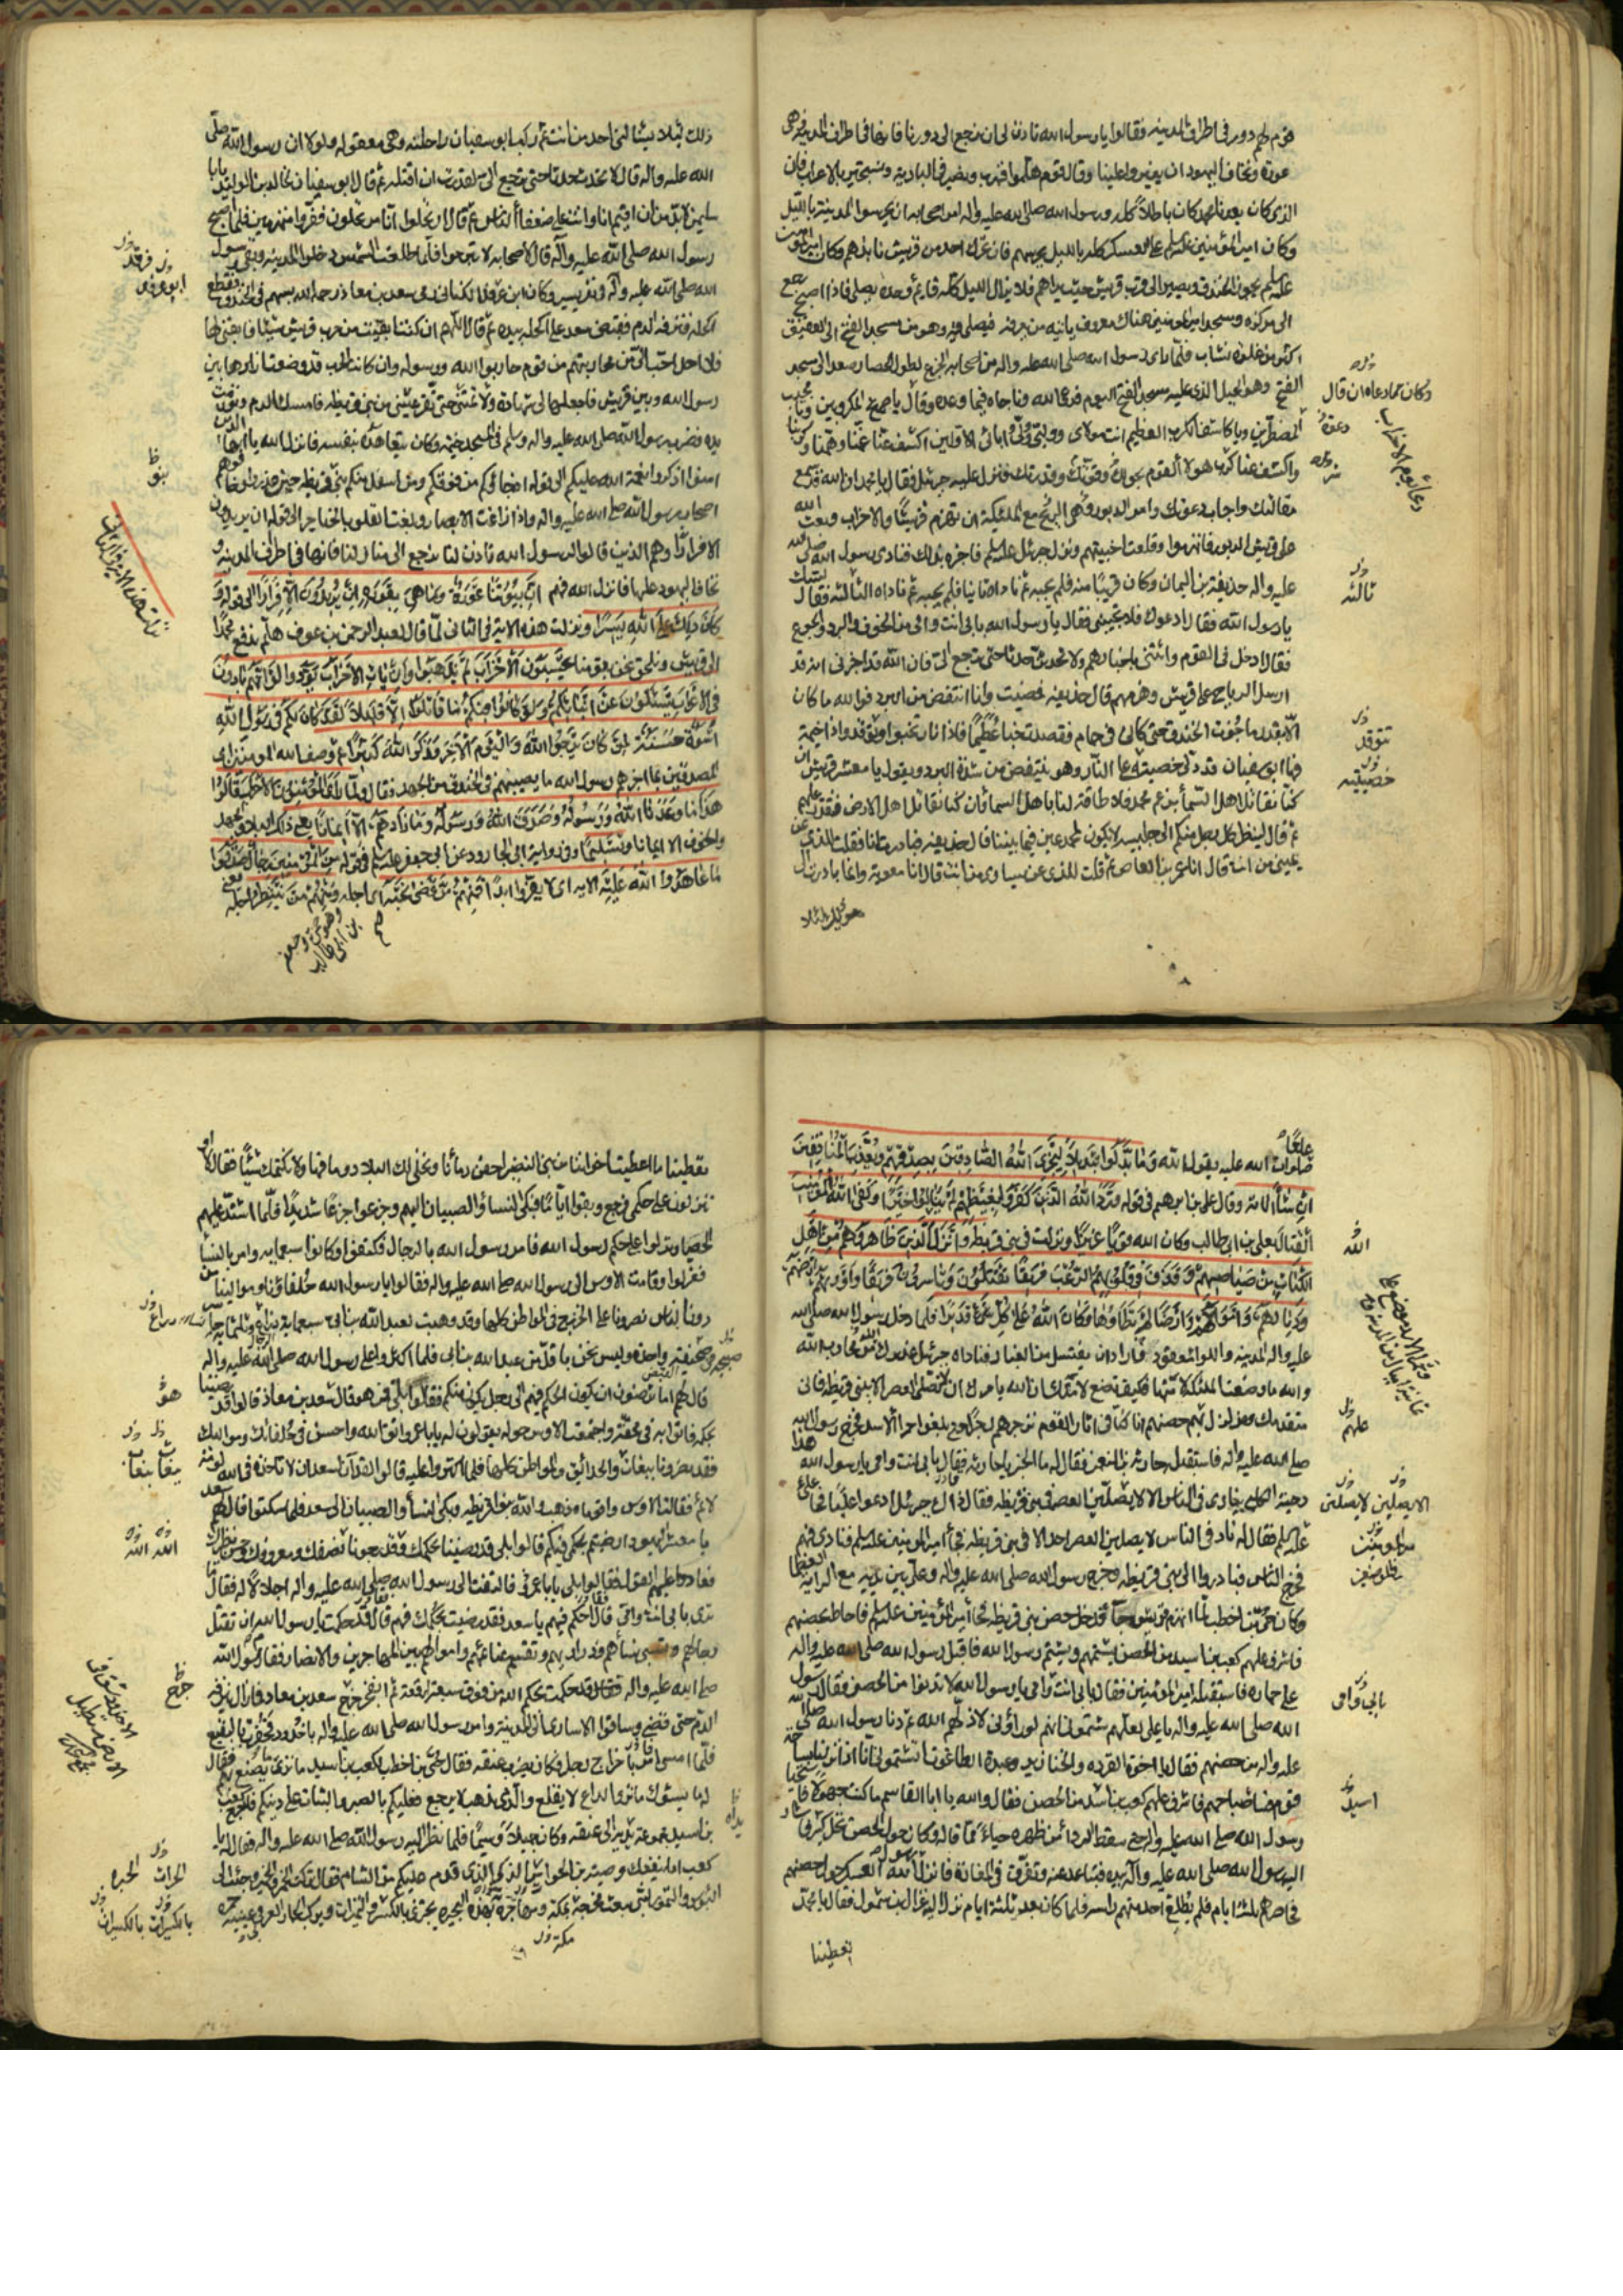 قوم لهم دور في اطراف المدينه فقالوا يا رسول الله تاذن لنا ان نرجع الى دورنا فانها في اطراف المدينة وهي
عورة ونخاف اليهود ان يغيروا علينا وقال قوم هلموا فنهرب ونصير في البادية ونستجير بالاعراب فان
الذي كان يعدنا محمد كان باطلا كله ورسول الله صلى الله عليه واله امر اصحابه ان يحرسوا المدينة بالليل
وكان امير المؤمنين عليه السلم على العسكر كله بالليل يحرسهم فان تحرك احد من قريش نابذهم وكان امير المؤمنين
عليه السلم يجوز الخندق ويصير الى قرب قريش حيث يراهم فلا يزال الليل كله قايم وحده يصلي فاذا اصبح رجع
الى مركزه ومسجد امير المؤمنين هناك معروف ياتيه من يعرفه فيصلي فيه وهو من مسجد الفتح الى العقيق
اكثر من غلوة نشاب فلما راى رسول الله صلى الله عليه واله من اصحابه الجزع لطول الحصار صعد الى مسجد
الفتح وهو الجبل الذي عليه مسجد الفتح اليوم فدعا الله وناجاه فيما وعده وقال يا صريخ المكروبين ويا مجيب
المضطرين ويا كاشف الكرب العظيم انت مولاي ووليي وولي ابائي الاولين اكشف عنا غمنا وهمنا وكربنا
واكشف عنا كرب هولاء القوم بحولك وقوتك وقدرتك فنزل عليه جبرئيل فقال يا محمد ان الله قد سمع
مقالتك واجاب دعوتك وامر الدبور وهي الريح مع الملئكة ان تهزم قريشا والاحزاب وبعث الله
على قريش الدبور فانهزموا وقلعت اخبيتهم ونزل جبرئيل عليه السلم فاخبره بذلك فنادى رسول الله صلى الله
عليه واله حذيفة بن اليمان وكان قريبا منه فلم يجبه ثم ناداه ثانيا فلم يجبه ثم ناداه الثالثة فقال لبيك
يا رسول الله فقال ادعوك فلا تجيبني فقال يا رسول الله بابي انت وامي من الخوف والبرد والجوع
فقال ادخل في القوم وائتني باخبارهم ولا تحدثن حدثا حتى ترجع الي فان الله قد اخبرني انه قد
ارسل الرياح على قريش وهزمهم قال حذيفة فمضيت وانا انتفض من البرد فوالله ما كان
الا بقدر ما جزت الخندق حتى كاني في حمام فقصدت خباء عظيما فاذا نار تخبو وتوقد واذا خيمة
فيها ابو سفيان قد دلى خصيته على النار وهو ينتفض من شدة البرد ويقول يا معشر قريش ان
كنا نقاتل اهل السماء بزعم محمد فلا طاقة لنا باهل السماء وان كنا نقاتل اهل الارض فنقدر عليهم
ثم قال لينظر كل رجل منكم الى جليسه لا يكون لمحمد عين فيما بيننا قال حذيفة فبادرت انا فقلت للذي عن
يميني من انت قال انا عمرو بن العاص ثم قلت للذي عن يساري من انت قال انا معوية وانما بادرت الى
وكان مما دعاه ان قال
دعوة
ثالثه
تتوقد
خصيتيه
ذلك لئلا يسالني احد من انت ثم ركب ابو سفيان راحلته وهي معقوله ولولا ان رسول الله صلى
الله عليه واله قال لا تحدث حدثا حتى ترجع الي لقدرت ان اقتله ثم قال ابو سفيان لخالد بن الوليد يا با
سليمن لا بد من ان اقيم انا وانت على ضعفاء الناس ثم قال ارتحلوا انا مرتحلون ففروا منهزمين فلما اصبح
رسول الله صلى الله عليه واله قال لاصحابه لا تبرحوا فلما طلعت الشمس دخلوا المدينه وبقي رسول
الله صلى الله عليه واله في نفر يسير وكان ابن عرقد الكناني رمى سعد بن معاذ رحمه الله بسهم في الخندق فقطع
اكحله فنزفه الدم فقبض سعد على اكحله بيده ثم قال اللهم ان كنت ابقيت من حرب قريش شيئا فابقني لها
فلا احد احب الي من محاربتهم من قوم حاربوا الله ورسوله وان كانت الحرب قد وضعت اوزارها بين
رسول الله وبين قريش فاجعلها لي شهادة ولا تمتني حتى تقر عيني من بني قريظه فامسك الدم وتورمت
يده وضرب رسول الله صلى الله عليه واله وسلم في المسجد خيمة وكان يتعاهده بنفسه فانزل الله يا ايها الذين
امنوا اذكروا نعمة الله عليكم الى قوله اذ جاؤكم من فوقكم ومن اسفل منكم بني قريظه حين غدروا وخافهم
اصحاب رسول الله صلى الله عليه واله واذ زاغت الابصار وبلغت القلوب الحناجر الى قوله ان يريدون
الا فرارا وهم الذين قالوا لرسول الله تاذن لنا نرجع الى منازلنا فانها في اطراف المدينه و
نخاف اليهود عليها فانزل الله فيهم ان بيوتنا عورة وما هي بعورة ان يريدون الا فرارا الى قوله و
كان ذلك على الله يسيرا ونزلت هذه الاية في الثاني لما قال لعبد الرحمن بن عوف هلم ندفع محمدا
الى قريش ونلحق نحن بقومنا يحسبون الاحزاب لم يذهبوا وان يات الاحزاب يودوا لو انهم بادون
في الاعراب يسئلون عن انبائكم ولو كانوا فيكم ما قاتلوا الا قليلا لقد كان لكم في رسول الله
اسوة حسنة لمن كان يرجوا الله واليوم الاخر وذكر الله كثيرا ثم وصف الله المومنين اي
المصدقين بما اخبرهم رسول الله ما يصيبهم في الخندق من الجهد فقال ولما راى المؤمنون الاحزاب قالوا
هذا ما وعدنا الله ورسوله وصدق الله ورسوله وما زادهم الا ايمانا يعني ذلك البلاء والجهد
والخوف الا ايمانا وتسليما وفي رواية ابي الجارود عن ابي جعفر عليه السلم في قوله من المؤمنين رجال صدقوا
ما عاهدوا الله عليه الاية اي لا يفروا ابدا فمنهم من قضى نحبه اي اجله ومنهم من ينتظر اجله
وهو حمزة وجعفر
بن ابي طالب
صلوات الله عليه يقول الله وما بدلوا تبديلا ليجزي الله الصادقين بصدقهم ويعذب المنافقين
ان شاء الاية وقال علي بن ابرهيم في قوله ورد الله الذين كفروا بغيظهم لم ينالوا خيرا وكفى الله المؤمنين
القتال بعلي بن ابي طالب وكان الله قويا عزيزا ونزلت في بني قريظه وانزل الذين ظاهروهم من اهل
الكتاب من صياصيهم وقذف في قلوبهم الرعب فريقا تقتلون وتاسرون فريقا واورثكم ارضهم
وديارهم واموالهم وارضا لم تطاوها وكان الله على كل شيء قديرا فلما دخل رسول الله صلى الله
عليه واله المدينه واللواء معقود فاراد ان يغتسل من الغبار فناداه جبرئيل عذيرك من محارب الله
والله ما وضعت الملئكة لامتها فكيف تضع لامتك ان الله يامرك ان لا تصلي العصر الا ببني قريظه فاني
متقدمك ومزلزل بهم حصنهم انا كنا في اثار القوم نزجرهم زجرا حتى بلغوا حمراء الاسد فخرج رسول الله
صلى الله عليه واله فاستقبله حارثه بن النعمن فقال له ما الخبر يا حارثه فقال بابي انت وامي يا رسول الله هذا
دحية الكلبي ينادي في الناس الا لا يصلين العصر الا في بني قريظه فقال ذاك جبرئيل ادعوا عليا فجاء
عليه السلم فقال له ناد في الناس لا يصلين العصر احد الا في بني قريظه فجاء امير المومنين عليه السلم فنادى فيهم
فخرج الناس فبادروا الى بني قريظه وخرج رسول الله صلى الله عليه واله وعلي بين يديه مع الراية العظمى
وكان حيي بن اخطب لما انهزم قريش جاء فدخل حصن بني قريظه فجاء امير المؤمنين عليه السلم فاحاط بحصنهم
فاشرف عليهم كعب بن اسيد من الحصن يشتمهم ويشتم رسول الله فاقبل رسول الله صلى الله عليه واله
على حماره فاستقبله امير المؤمنين فقال بابي انت وامي يا رسول الله لا تدنوا من الحصن فقال رسول
الله صلى الله عليه واله يا علي لعلهم شتموني انهم لو راوني لاذلهم الله ثم دنا رسول الله صلى الله
عليه واله من حصنهم فقال يا اخوة القردة والخنازير وعبدة الطاغوت اتشتموني انا اذا نزلنا بساحة
قوم فساء صباحهم فاشرف عليهم كعب بن اسد من الحصن فقال والله يا ابا القاسم ما كنت جهولا فاستحيا
رسول الله صلى الله عليه واله حتى سقط الرداء من ظهره حياء مما قاله وكان حول الحصن نخل كثير فاشار
اليه رسول الله صلى الله عليه واله بيده فتباعد عنه وتفرق في المفازة فانزل رسول الله العسكر حول حصنهم
فحاصرهم ثلثة ايام فلم يطلع احد منهم راسه فلما كان بعد ثلثة ايام نزل اليه غزال بن شمول فقال يا محمد
تعطينا
الله
عليهم
الا يصلين لا يصلين
بابي وامي
اسيد
تعطينا ما اعطيت اخواننا من بني النضير احقن دمائنا ونخلي لك البلاد وما فيها ولا نكتمك شيئا فقال لا او
تنزلون على حكمي فرجع وبقوا اياما فبكى النساء والصبيان اليهم وجزعوا جزعا شديدا فلما اشتد عليهم
الحصار نزلوا على حكم رسول الله فامر رسول الله بالرجال فكتفوا وكانوا سبعمايه وامر بالنساء
فعزلوا وقامت الاوس الى رسول الله صلى الله عليه واله فقالوا يا رسول الله حلفاؤنا وموالينا من
دون الناس نصرونا على الخزرج في المواطن كلها وقد وهبت لعبد الله بن ابي سبعماية دراع وثلثماية حاسر
في صبيحة واحدة وليس نحن باقل من عبد الله بن ابي فلما اكثروا على رسول الله صلى الله عليه واله
قال لهم اما ترضون ان يكون الحكم فيهم الى رجل منكم فقالوا بلى فمن هو قال سعد بن معاذ قالوا قد رضينا
بحكمه فاتوا به في محفة واجتمعت الاوس حوله يقولون له يا با عمرو اتق الله واحسن في حلفائك ومواليك
فقد نصرونا ببغاث والحدائق والمواطن كلها فلما اكثروا عليه قال لقد آن لسعد ان لا تاخذه في الله لومة
لائم فقالت الاوس واقوماه ذهبت والله بنو قريظه وبكى النساء والصبيان الى سعد فلما سكتوا قال لهم سعد
يا معشر اليهود ارضيتم بحكمي فيكم قالوا بلى قد رضينا بحكمك وقد رجونا نصفك ومعروفك وحسن نظرك
فعاد عليهم القول فقالوا بلى يا با عمرو فالتفت الى رسول الله صلى الله عليه واله اجلالا له فقال ما
ترى بابي انت وامي قال احكم فيهم يا سعد فقد رضيت بحكمك فيهم قال قد حكمت يا رسول الله ان تقتل
رجالهم وتسبي نساءهم وذراريهم وتقسم غنائمهم واموالهم بين المهاجرين والانصار فقام رسول الله
صلى الله عليه واله فقال قد حكمت بحكم الله من فوق سبعة ارقعة ثم انفجر جرح سعد بن معاذ فما زال نزفه
الدم حتى قضى وساقوا الاسارى الى المدينة وامر رسول الله صلى الله عليه واله باخدود فحفرت بالبقيع
فلما امسى امر باخراج رجل رجل فكان يضرب عنقه فقال حيي بن اخطب لكعب بن اسيد ما ترى يصنع بهم فقال
له ما يسؤك اما ترى الداعي لا يقلع والذي يذهب لا يرجع فعليكم بالصبر والثبات على دينكم فاخرج كعب
بن اسيد مجموعة يديه الى عنقه وكان جميلا وسيما فلما نظر اليه رسول الله صلى الله عليه واله فقال له يا
كعب اما نفعك وصية بن الحواش الحبر الذكي الذي قدم عليكم من الشام فقال تركت الخمر والخمير وجئت الى
البؤس والتمور لنبي يبعث مخرجه بمكة ومهاجره في هذه البحيره يجتزي بالكسرة والتميرات ويركب الحمار العري في عينيه حمرة
مكة
الحواث الحبره
بالكسرات بالكسيرات
الله الله
بغاث بغاث
يداه